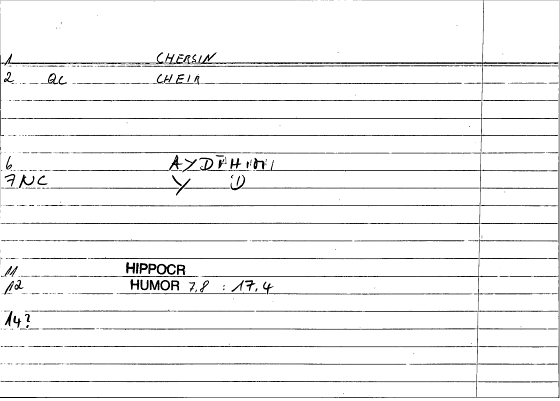 1 CHERSIN
2 QC CHEIR
6
7 NC Y D
11 HIPPOCR
12 HUMOR 7,8 : 17,4
14?